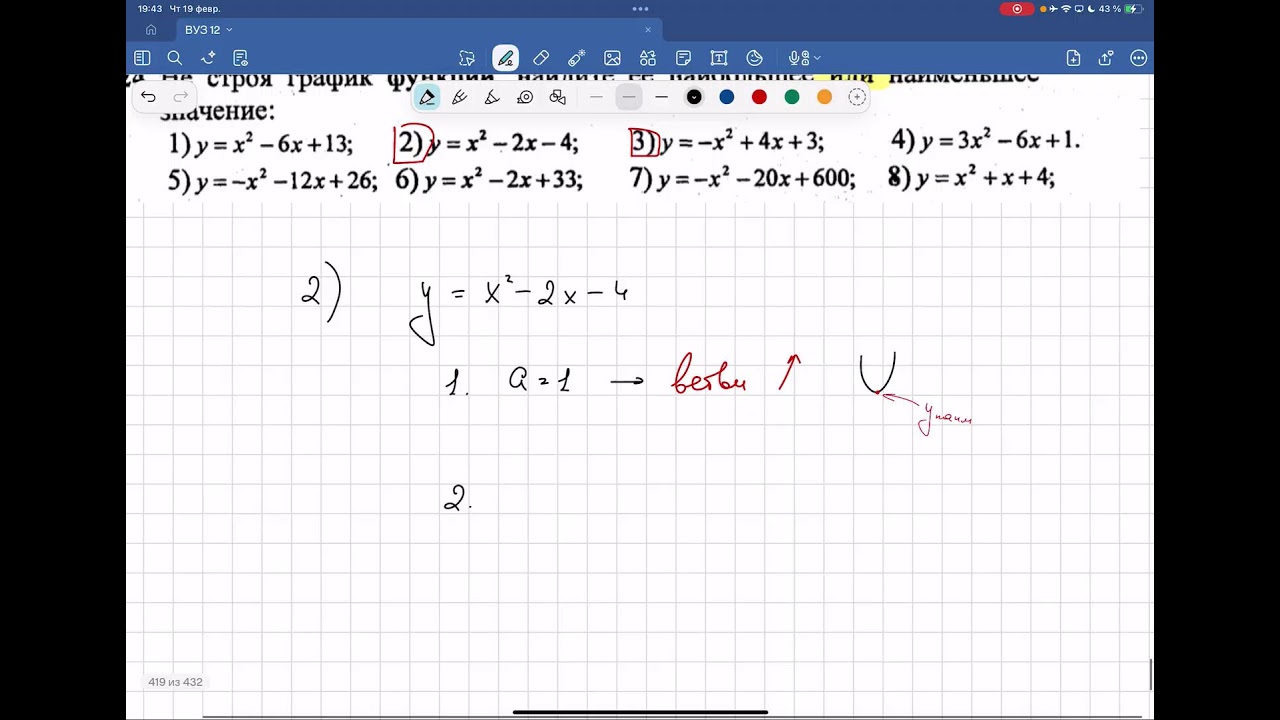 19:43 Чт 19 февр.
43 %
ВУЗ 12
Не строя график функции, найдите ее наибольшее или наименьшее
значение:
1) y = x² − 6x + 13; 2) y = x² − 2x − 4; 3) y = −x² + 4x + 3; 4) y = 3x² − 6x + 1.
5) y = −x² − 12x + 26; 6) y = x² − 2x + 33; 7) y = −x² − 20x + 600; 8) y = x² + x + 4;
2) y = x² − 2x − 4
1. a = 1 → ветви ↑
y наим
2.
419 из 432